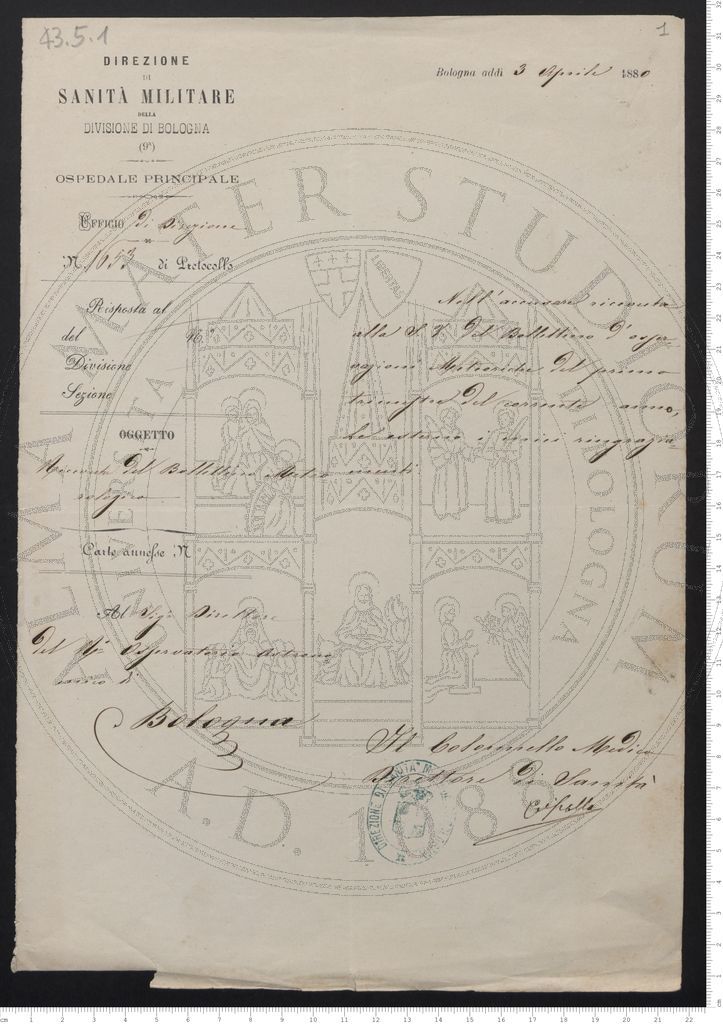 43.5.1
1
DIREZIONE
DI
SANITÀ MILITARE
DELLA
DIVISIONE DI BOLOGNA
(9ª)
OSPEDALE PRINCIPALE
UFFICIO di Direzione
N. 1653 di Protocollo
Risposta al
del
Divisione
Sezione
OGGETTO
Ricevuta del Bollettino Meteo
rologico
Carte annesse N
Al Sigr Direttore
del Rº Osservatorio Astrono
mico di
Bologna
Bologna addì 3 Aprile 1880
Nell'accusare ricevuta
alla S. V. del Bollettino d'osser
vazioni Meteoriche del primo
trimestre del corrente anno,
Le esterno i miei ringrazia
menti
Il Colonnello Medico
Direttore di Sanità
DIREZIONE DI SANITÀ
ALMA MATER STUDIORUM
A.D. 1088
LIBERTAS